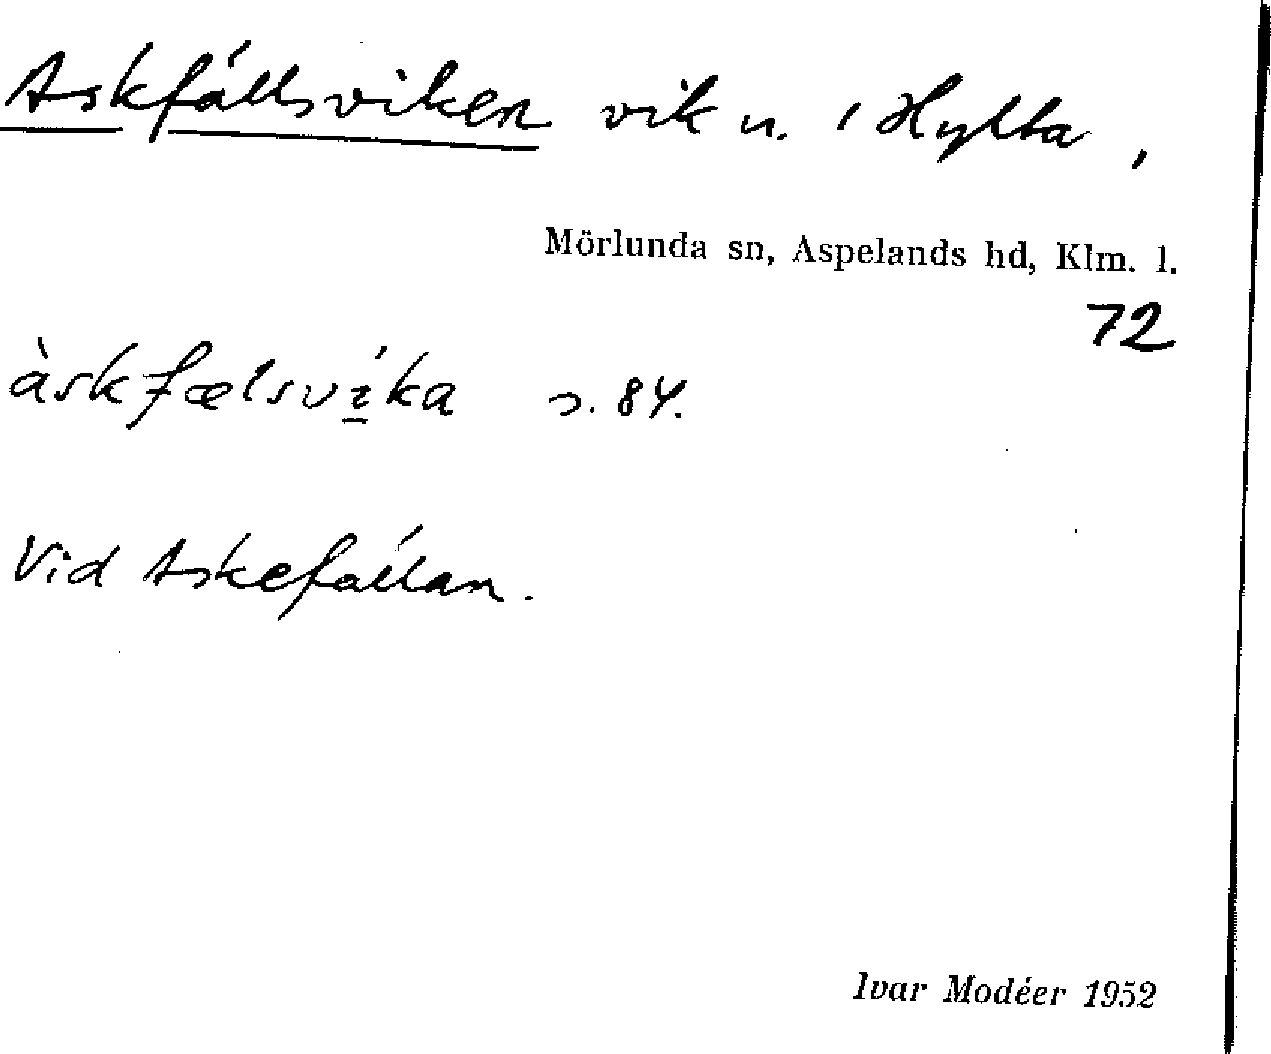 Askfällsviken vik n. i Hylta,
Mörlunda sn, Aspelands hd, Klm. l.
72
àskfælsví̱ka s. 84.
Vid Askefällan.
Ivar Modéer 1952